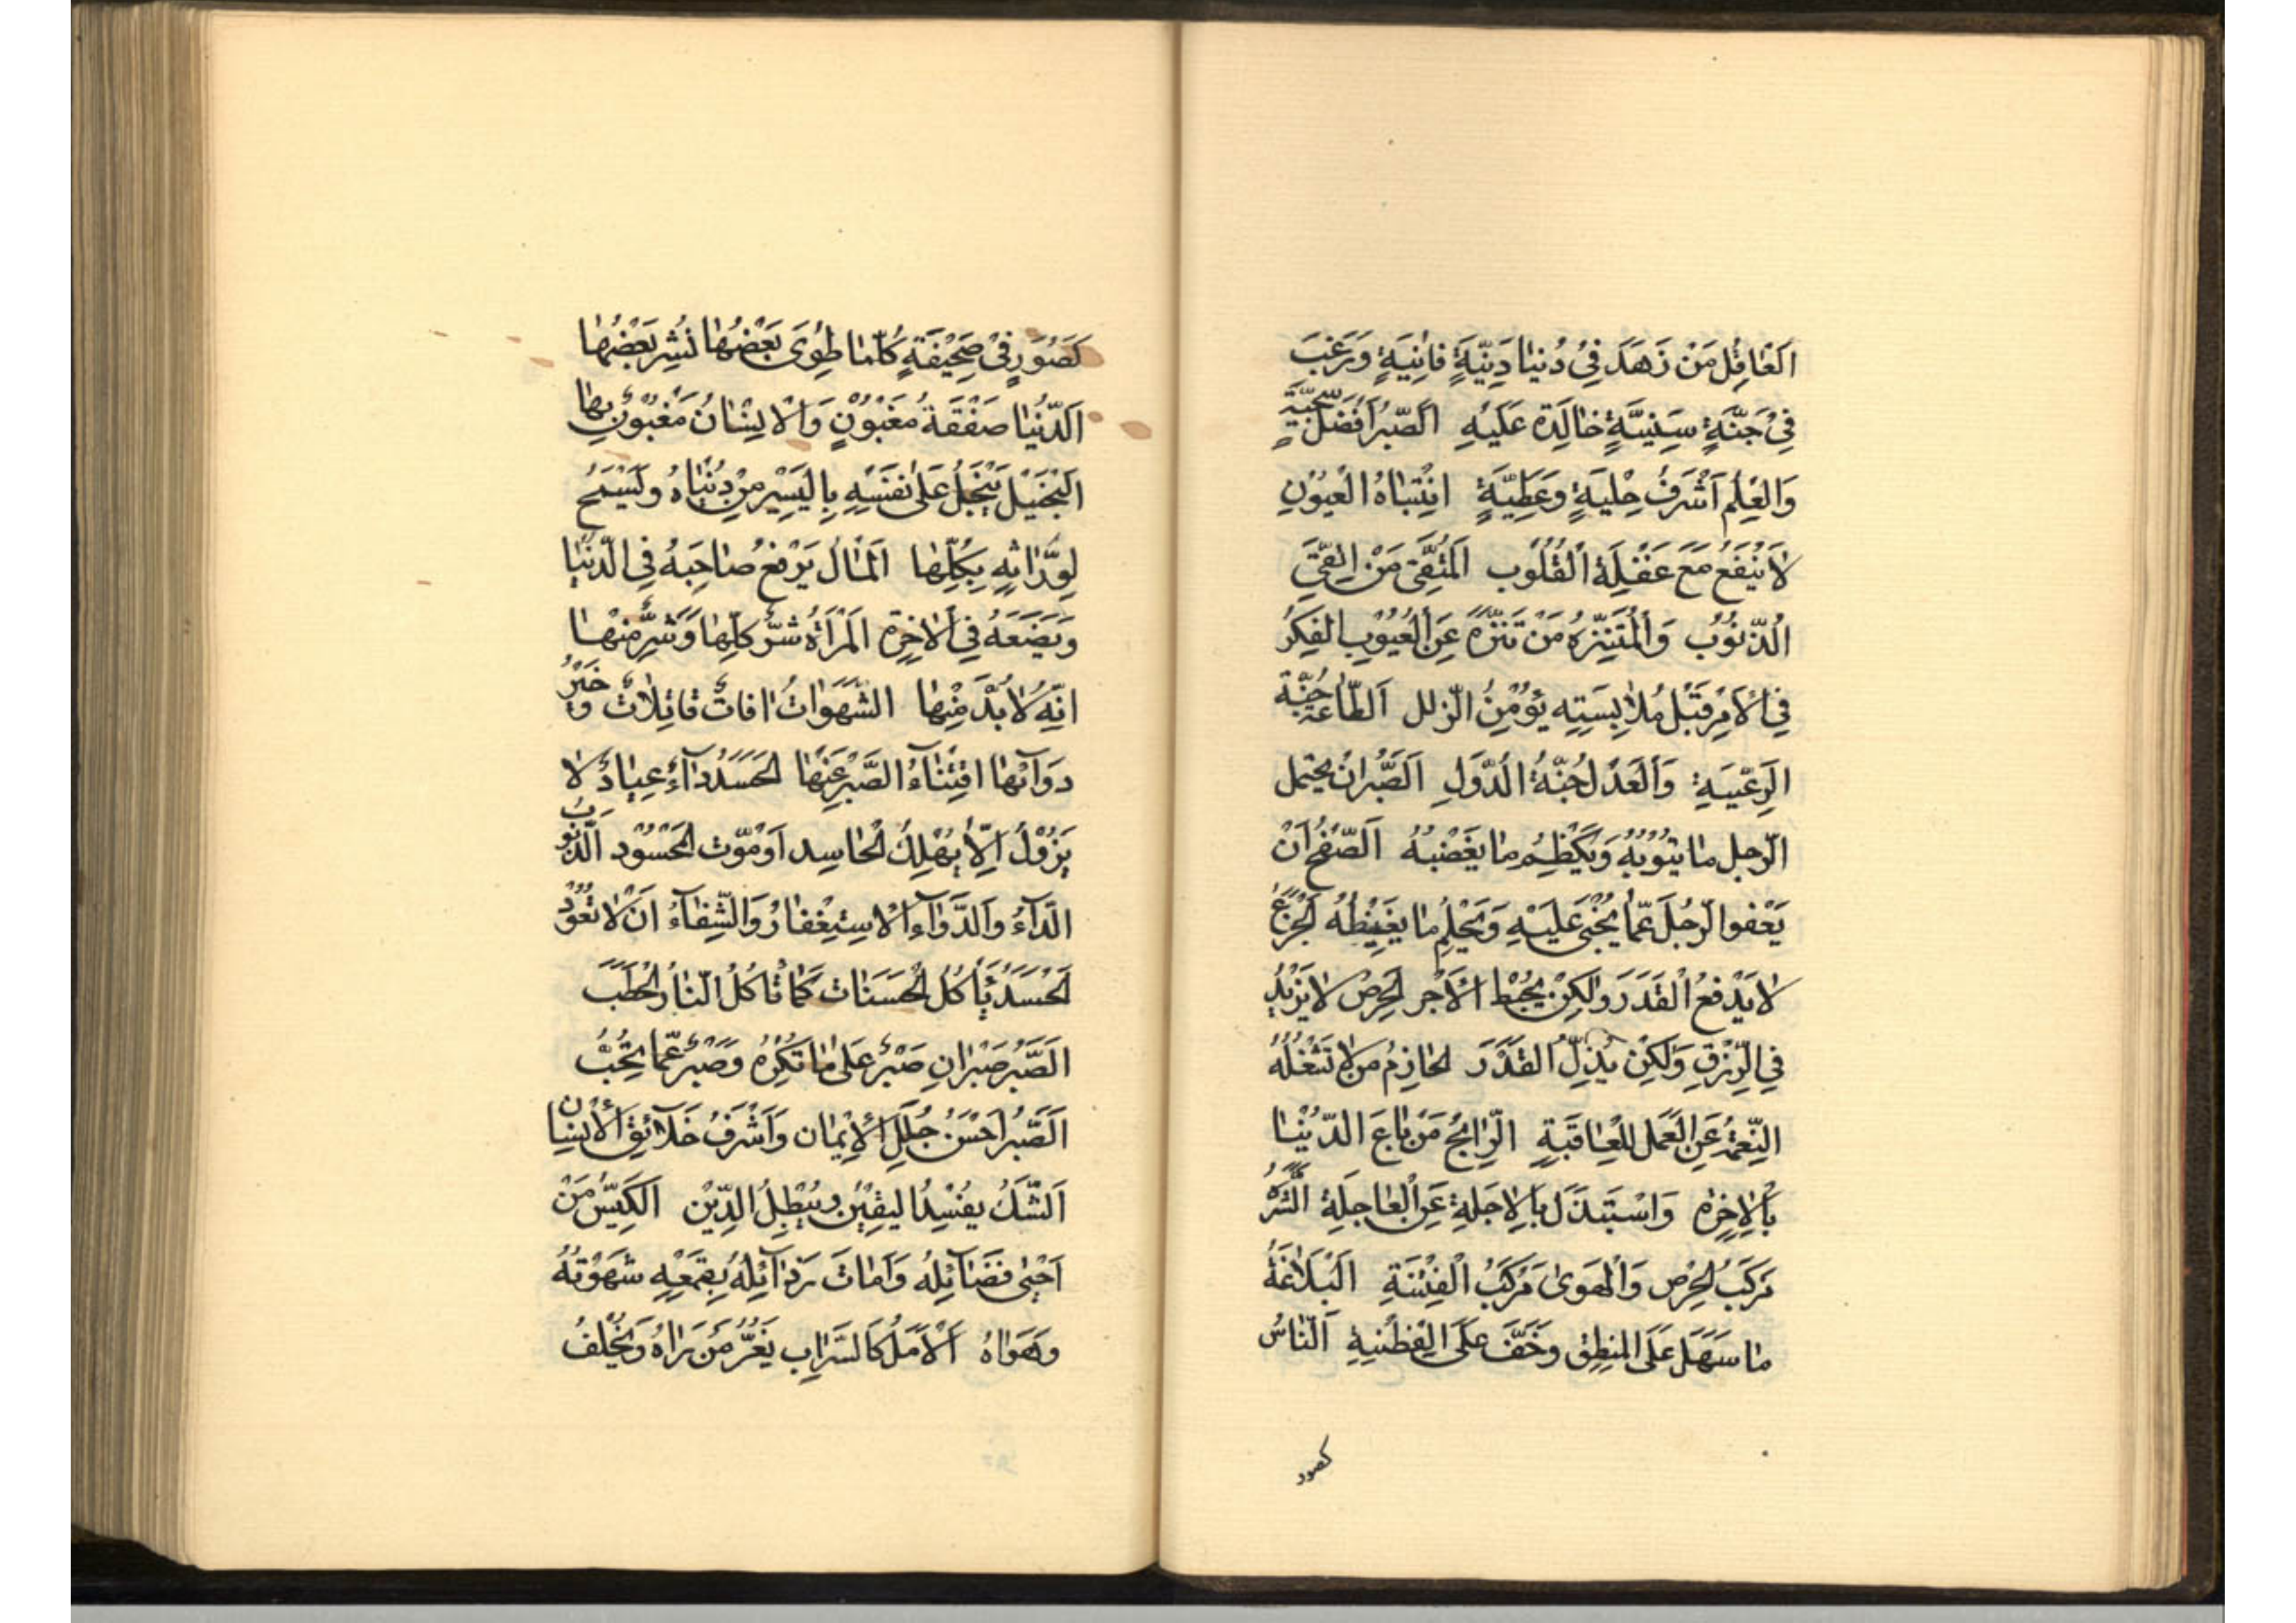 اَلْعٰاقِلُ مَنْ زَهَدَ فِىْ دُنْيٰا دَنِيَّةٍ فٰانِيَةٍ وَرَغِبَ
فِىْ جَنَّةٍ سَنِيَّةٍ خٰالِدَة عَلَيْهِ اَلصَّبْرُ اَفْضَلُ سَجِيَّةٍ
وَالْعِلْمُ اَشْرَفُ حِلْيَةٍ وَعَطِيَّةٍ اِنْتِبٰاهُ الْعُيُوْنِ
لٰا يَنْفَعُ مَعَ غَفْلَةِ الْقُلُوْبِ اَلْمُتَّقِىْ مَنْ اِتَّقَىَ
الذُّنُوْبَ وَالْمُتَنَزِّهُ مَنْ تَنَزَّهَ عَنِ الْعُيُوْبِ الْفِكْرُ
فِى الْاَمْرِ قَبْلَ مُلٰابِسَتِهِ يُؤْمِنُ الزَّلل اَلطّٰاعَةُ جُنَّةُ
الرَّعِيَّةِ وَالْعَدْلُ جُنَّةُ الدُّوَلِ اَلصَّبْرُ اَنْ يحتمل
الرّجل مٰا يَنُوْبُهُ وَيَكْظِمُ مٰا يَغْضِبُهُ اَلصَّفْحُ اَنْ
يَعْفوا الرَّجُلَ عَمّٰا يُجْنٰى عَلَيْهِ وَيَحْلِمُ مٰا يَغِيْظُهُ الْجَزَعُ
لٰا يَدْفَعُ الْقَدَرَ وَلٰكِنْ يُحْبِطُ الْاَجْر الْحِرْصُ لٰا يَزِيْدُ
فِى الرِّزْقِ وَلٰكِنْ يُذِلُّ الْقَدْرَ الْحٰازِمُ مَنْ لٰا تَشْغَلُهُ
النِّعْمَةُ عَنِ الْعَمَلِ لِلْعٰاقِبَةِ الرّٰابِحُ مَنْ بٰاعَ الدُّنْيٰا
بِالْاٰخِرَة وَاسْتَبْدَلَ بِالْاٰجِلَةِ عَنِ الْعٰاجِلَةِ الشَّرَهُ
مَرْكَبُ الْحِرْصِ وَالْهَوٰى مَرْكَبُ الْفِتْنَةِ الْبَلٰاغَةُ
مٰا سَهَلَ عَلَى الْمَنْطِقِ وَخَفَّ عَلَى الْفِطْنَةِ اَلنّٰاسُ
كصور
كَصُوَرٍ فِىْ صَحِيْفَةٍ كُلَّمٰا طُوِىَ بَعْضُهٰا نُشِرَ بَعْضُهٰا
اَلدُّنْيٰا صَفْقَةُ مَغْبُوْنٍ وَالْاِنْسٰانُ مَغْبُوْنٌ بِهٰا
الْبَخِيْلُ يَبْخَلُ عَلٰى نَفْسِهِ بِالْيَسِيْرِ مِنْ دُنْيٰاهُ وَيَسْمَحُ
لِوُرّٰاثِهِ بِكُلِّهٰا اَلْمٰالُ يَرْفَعُ صٰاحِبَهُ فِى الدُّنْيٰا
وَيَضَعُهُ فِى الْاٰخِرَة اَلْمَرْأَةُ شَرٌّ كلُّهٰا وَشَرٌّ مِنْهٰا
اِنَّهُ لٰا بُدَّ مِنْهٰا الشَّهَوٰاتُ اٰفٰاتٌ قٰاتِلٰاتٌ وَخَيْرُ
دَوٰائِهٰا اقْتِنٰاءُ الصَّبْرِ عَنْهٰا الْحَسَدُ دٰاءٌ عِيٰادٌ لٰا
يَزُوْلُ اِلّٰا بِهُلْكِ الْحٰاسِدِ اَوْ مَوْتِ الْمَحْسُوْدِ اَلذُّنُوْبُ
الدّٰاءُ وَالدَّوٰاءُ الْاِسْتِغْفٰارُ وَالشِّفٰاءُ اَنْ لٰا تَعُوْدَ
الْحَسَدُ يَأْكُلُ الْحَسَنٰاتِ كَمٰا تَأْكُلُ النّٰارُ الْحَطَبَ
الصَّبْرُ صَبْرٰانِ صَبْرٌ عَلٰى مٰا تَكْرَهُ وَصَبْرٌ عَمّٰا تُحِبُّ
اَلصَّبْرُ اَحْسَنُ حُلَلِ الْاِيْمٰانِ وَاَشْرَفُ خَلٰائِقِ الْاِنْسٰانِ
اَلشَّكُّ يُفْسِدُ الْيَقِيْنَ وَيُبْطِلُ الدِّيْنَ اَلْكَيِّسُ مَنْ
اَحْيٰى فَضٰائِلَهُ وَاَمٰاتَ رَذٰائِلَهُ بِقَمْعِهِ شَهْوَتَهُ
وَهَوٰاهُ اَلْاَمَلُ كَالسَّرٰابِ يَغُرُّ مَنْ رَاٰهُ وَيُخْلِفُ